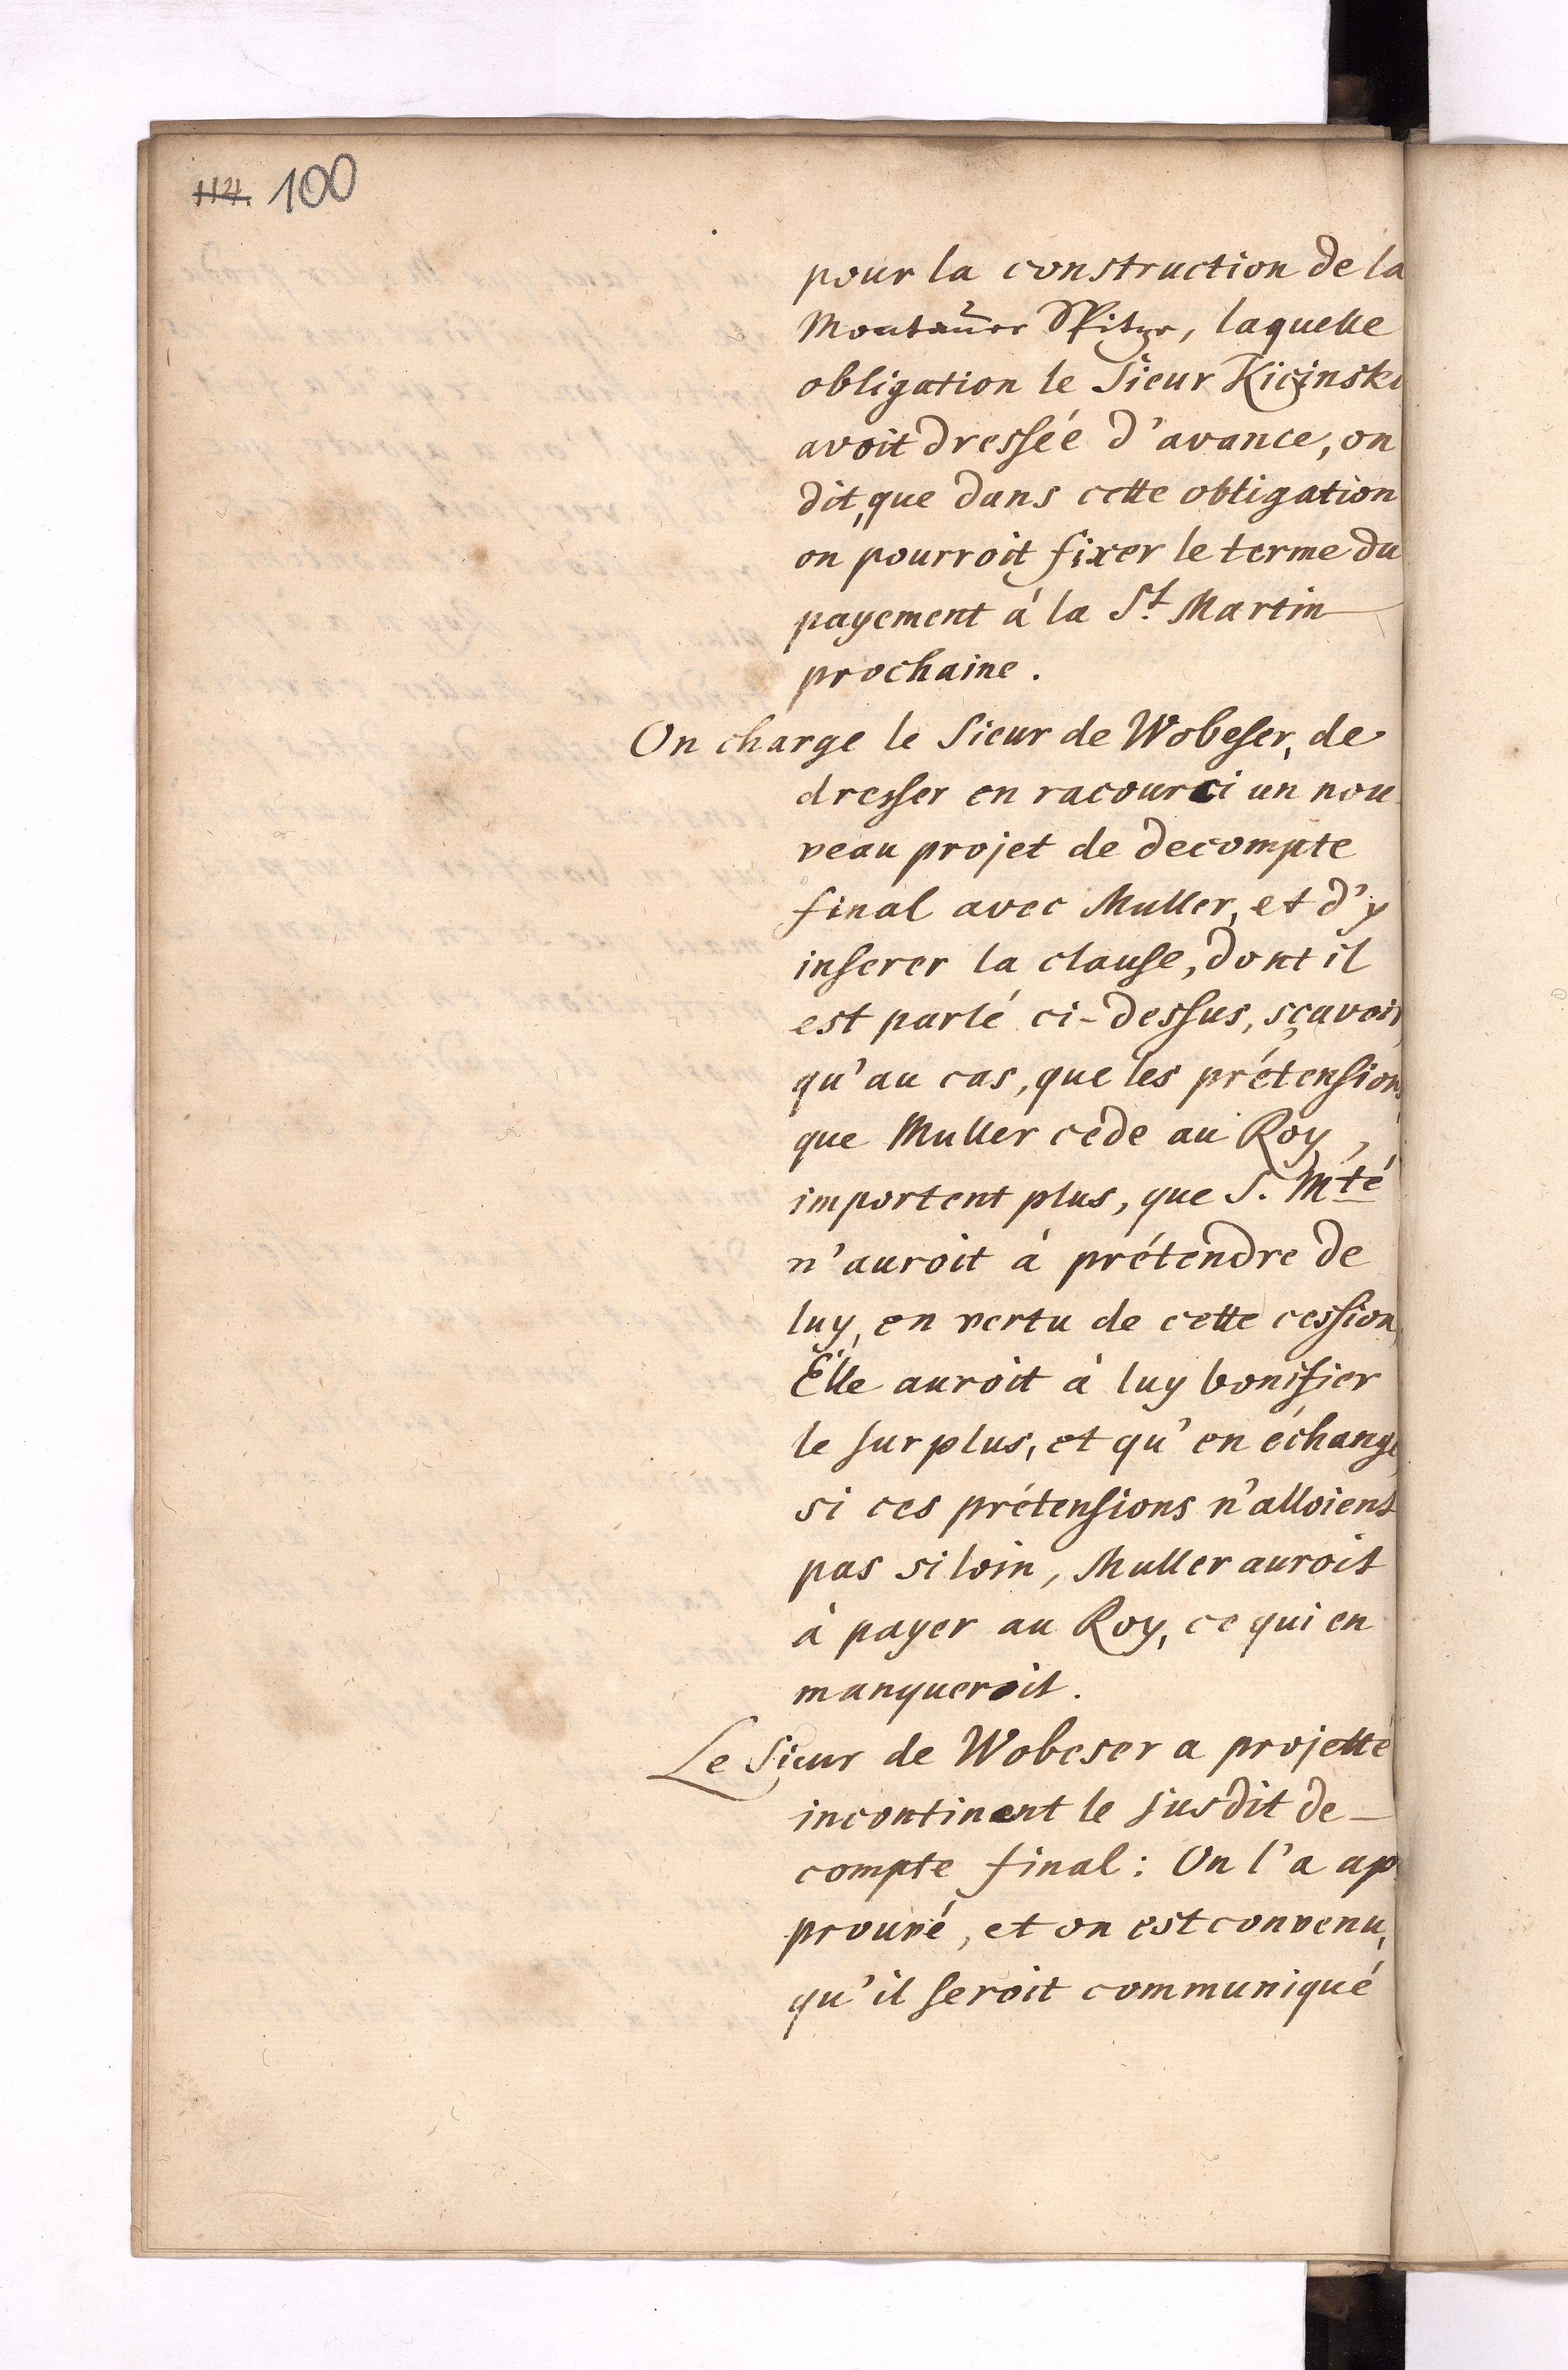 114. 100
pour la construction de la
Montauer Spitze, laquelle
obligation le Sieur Kiçinski
avoit dressée d'avance, on
dit, que dans cette obligation
on pourroit fixer le terme du
payement à la St. Martin
prochaine.
On charge le Sieur de Wobeser, de
dresser en racourci un nou
veau projet de decompte
final avec Muller, et d'y
inserer la clause, dont il
est parlé ci-dessus, sçavoir,
qu'au cas, que les prétensions
que Muller cede au Roy,
importent plus, que S. Mté
n'auroit à prétendre de
luy, en vertu de cette cession,
Elle auroit à luy bonifier
le surplus, et qu'en échange
si ces prétensions n'alloient
pas si loin, Muller auroit
à payer au Roy, ce qui en
manqueroit.
Le Sieur de Wobeser a projetté
incontinent le susdit de-
compte final: On l'a ap
prouvé, et on est convenu,
qu'il seroit communiqué